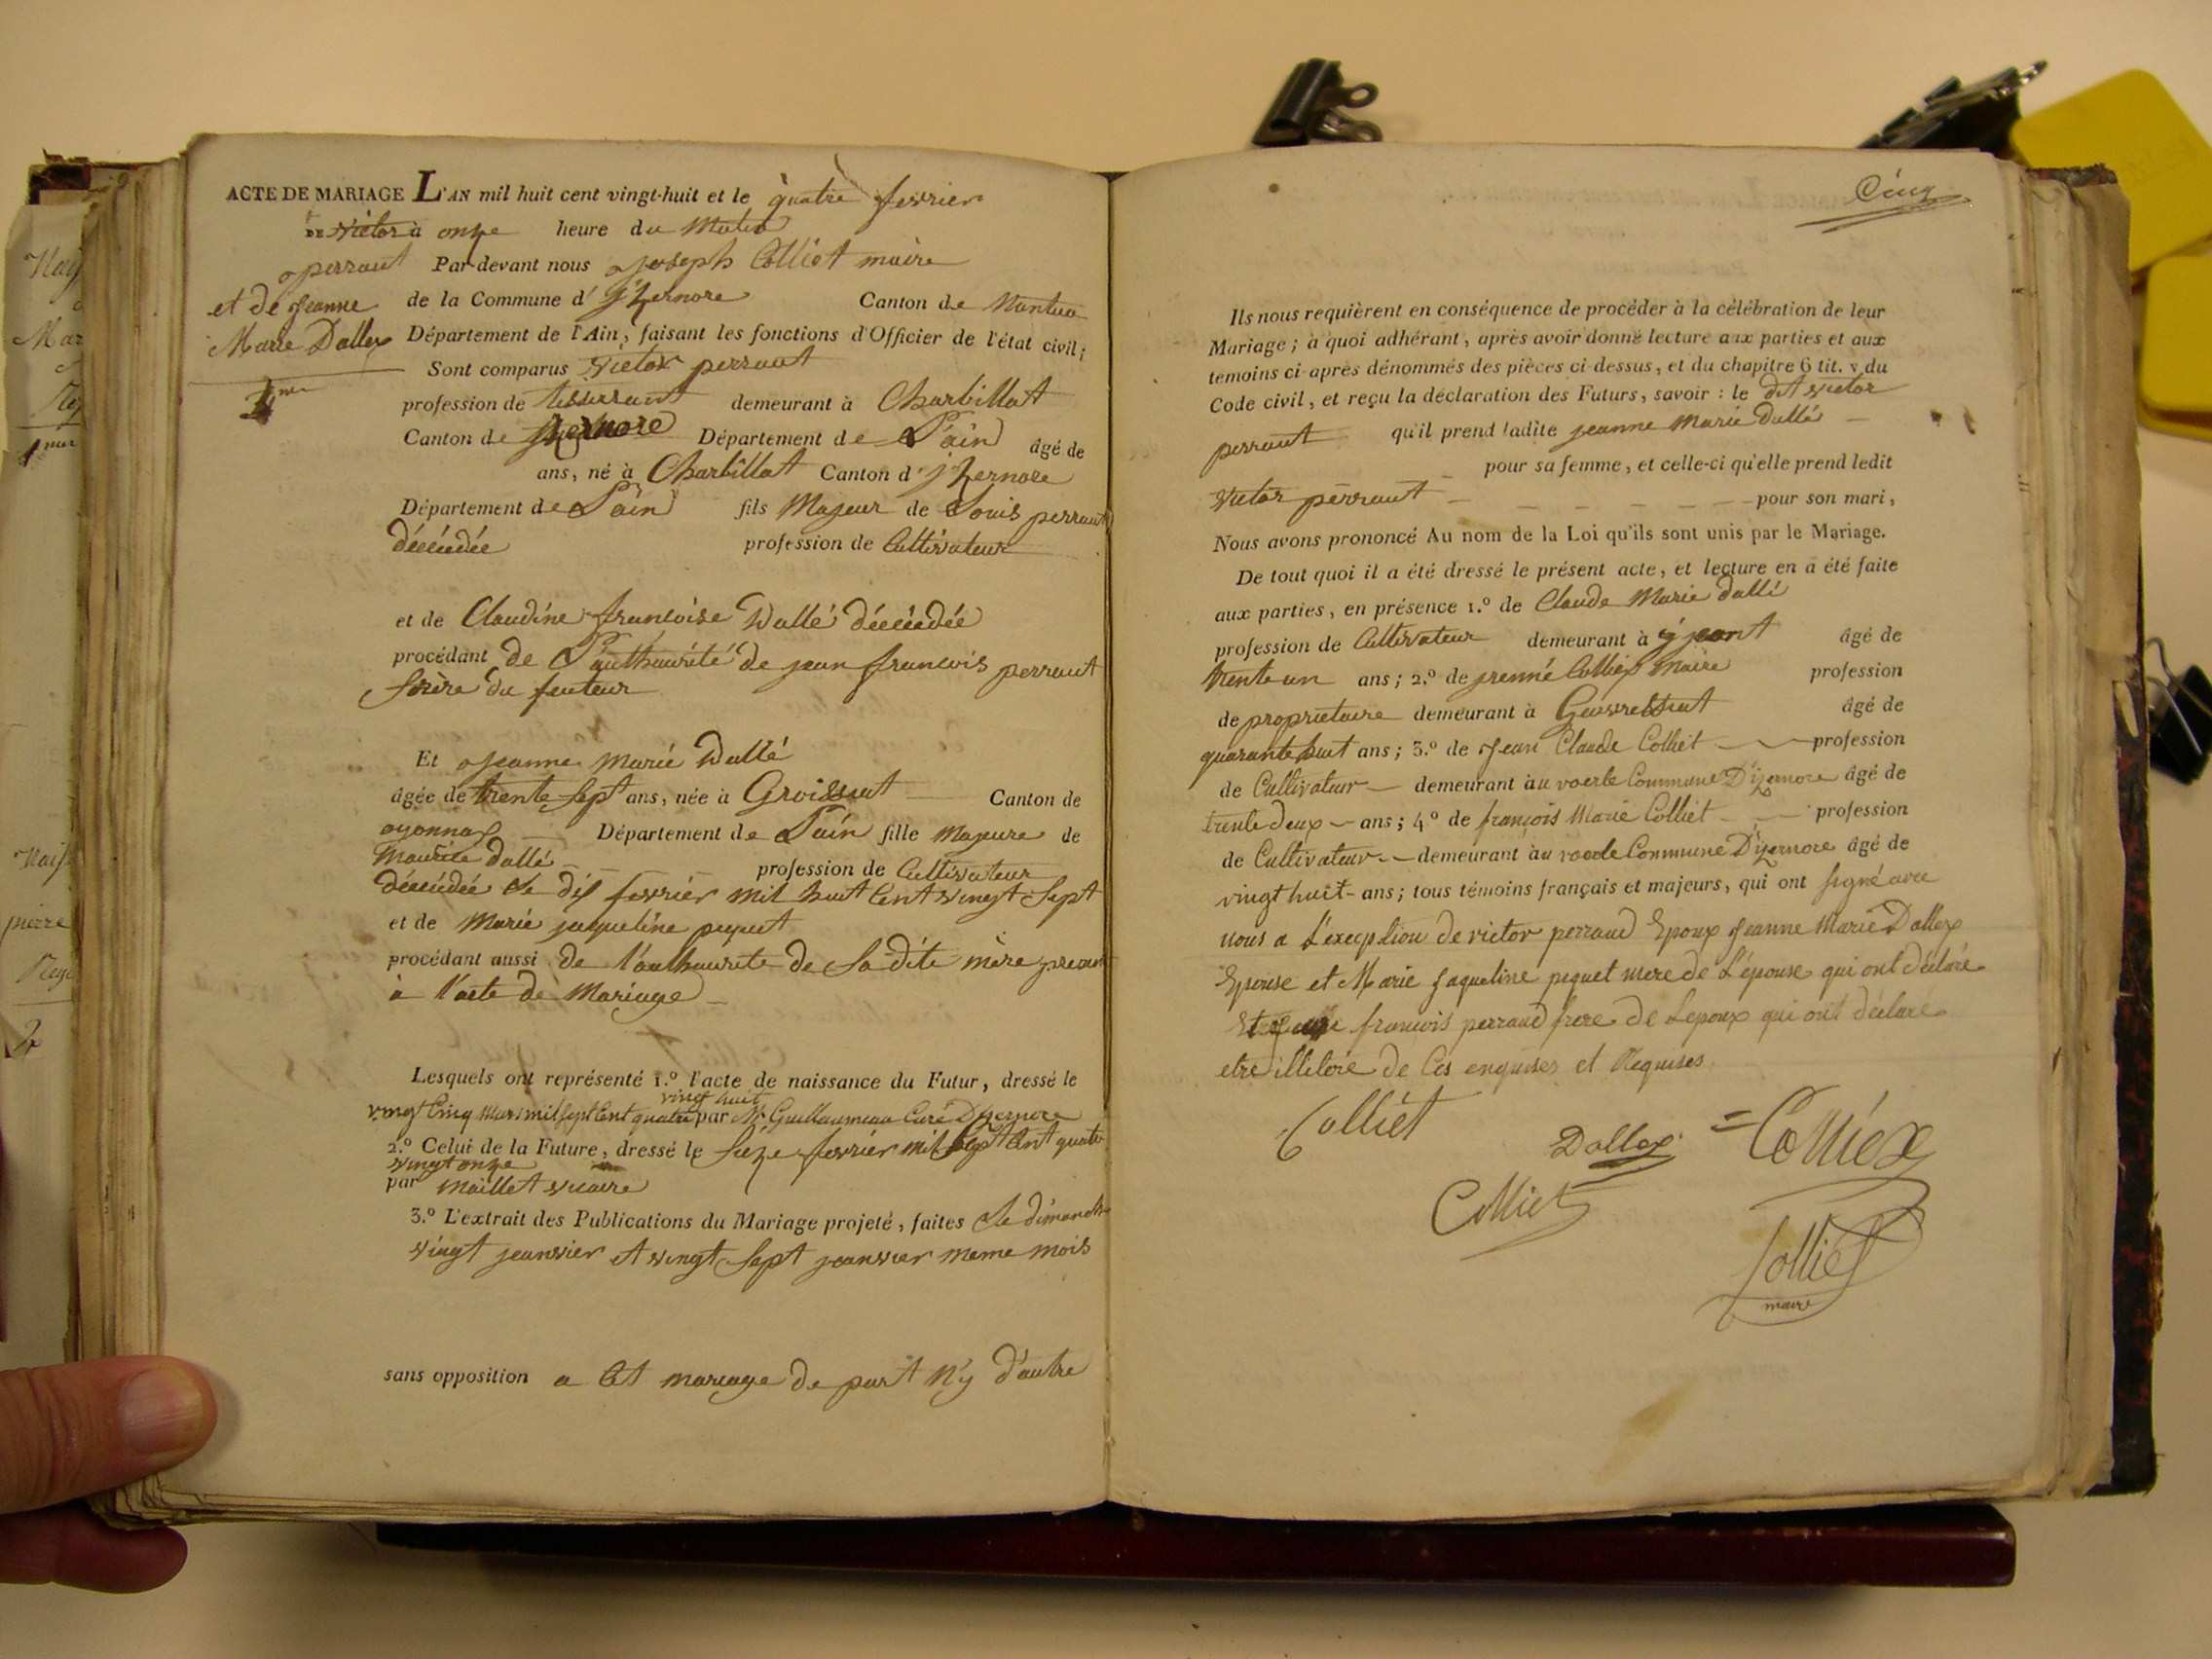 ACTE DE MARIAGE L'AN mil huit cent vingt-huit et le quatre fevrier
DE victor à onze heure du Matin
perraut Par-devant nous joseph Colliet maire
et de jeanne de la Commune d' jzernore Canton de Nantua
Marie Dallex Département de l'Ain, faisant les fonctions d'Officier de l'état civil;
Sont comparus victor perraut
profession de tisserant demeurant à Charbillat
Canton de jzernore Département de L'ain âgé de
ans, né à Charbillat Canton d' jzernore
Département de L'ain fils Majeur de Louis perraut
décéédée profession de Cultivateur
et de Claudine francoise Dallé décéédée
procédant de L'authaurité de jean francois perraut
frère du feuteur
Et jeanne Marie Dallé
âgée de trente sept ans, née à Groissiat Canton de
oyonnax Département de L'ain fille Majeure de
Maurice Dallé profession de Cultivateur
décéédée Le dix fevrier mil huit Cent vingt Sept
et de Marie jaqueline piquet
procédant aussi de l'authaurite de Sa dite mère presant
à l'acte de Mariage
Lesquels ont représenté 1.º l'acte de naissance du Futur, dressé le
vingt huit
vingt Cinq Mars mil sept Cent quatre par Mr Guillaumeau Curé D'izernore
2.º Celui de la Future, dressé le Sieze fevrier mil Sept Cent quatre
vingt onze
par Maillet vicaire
3.º L'extrait des Publications du Mariage projeté, faites Le dimanche
vingt jeanvier et vingt Sept jeanvier meme mois
sans opposition a Cet mariage de part N'y d'autre
Cinq
Ils nous requièrent en conséquence de procéder à la célébration de leur
Mariage; à quoi adhérant, après avoir donné lecture aux parties et aux
temoins ci-après dénommés des pièces ci-dessus, et du chapitre 6 tit. v du
Code civil, et reçu la déclaration des Futurs, savoir: le dit victor
perraut qu'il prend ladite jeanne Marie Dallé
pour sa femme, et celle-ci qu'elle prend ledit
victor perraut pour son mari,
Nous avons prononcé Au nom de la Loi qu'ils sont unis par le Mariage.
De tout quoi il a été dressé le présent acte, et lecture en a été faite
aux parties, en présence 1.º de Claude Marie dallé
profession de Cultivateur demeurant à âgé de
trente un ans; 2.º de Colliex Maire profession
de proprietaire demeurant à Geovreissiat âgé de
quarante huit ans; 3.º de Jean Claude Colliet profession
de Cultivateur demeurant au voerle Commune D'izernore âgé de
trente deux ans; 4º de françois Marie Colliet profession
de Cultivateur demeurant au voerle Commune D'izernore âgé de
vingt huit ans; tous témoins français et majeurs, qui ont signé avec
nous a L'exception de victor perraud Epoux Jeanne Marie Dallex
Epouse et Marie Jaqueline piquet mere de L'épouse qui ont déclaré
francois perraud frere de Lepoux qui ont declare
etre illitere de Ces enquises et Requises
Colliet
Dallex Colliex
Colliet
Colliet
maire
Naiss
Mar
1
Naiss
pierre
2